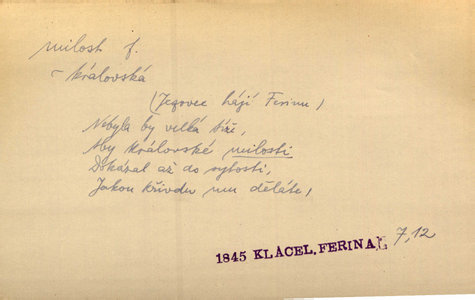 milost f.
~ Královská
(Jezovec hájí Ferinu,)
Nebyla by velká tíže,
Aby Královské milosti
Dokázal až do sytosti,
Jakou křivdu mu děláte,
1845 KLÁCEL, FERINA 7,12